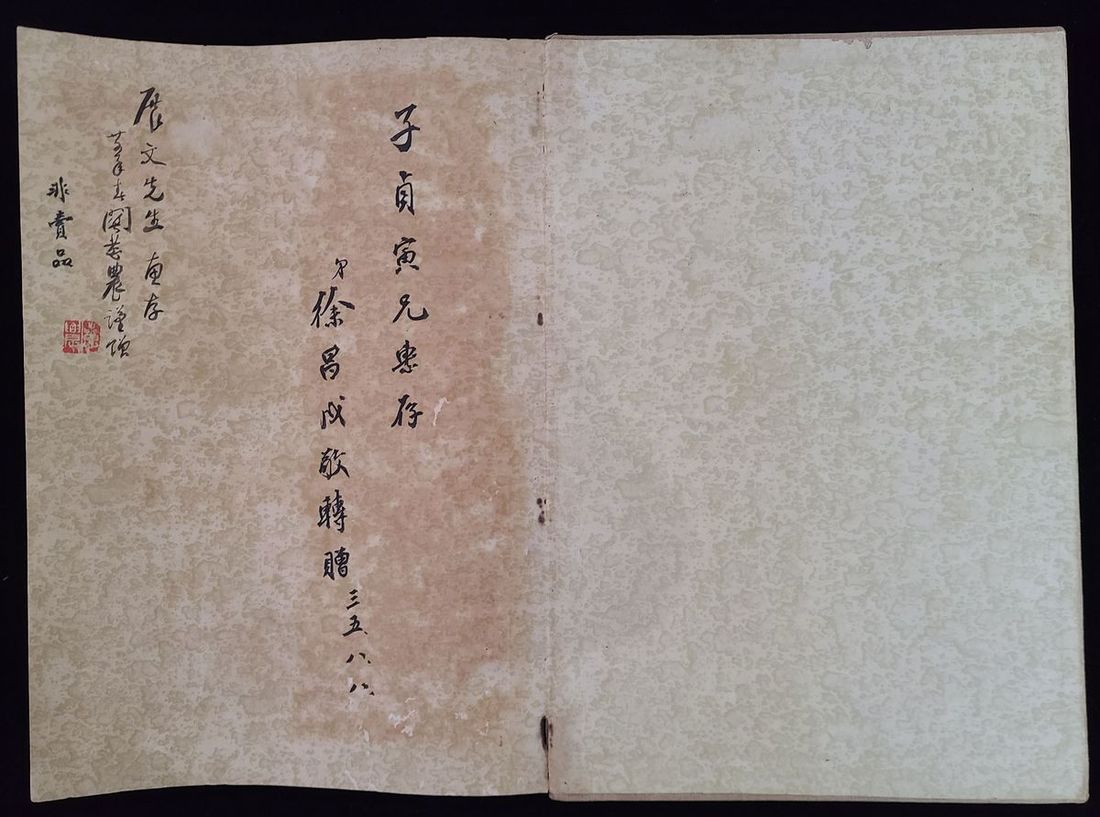 子貞寅兄惠存
弟徐昌成敬轉贈 三五、八、八、
展文先生惠存
農謹贈
非賣品